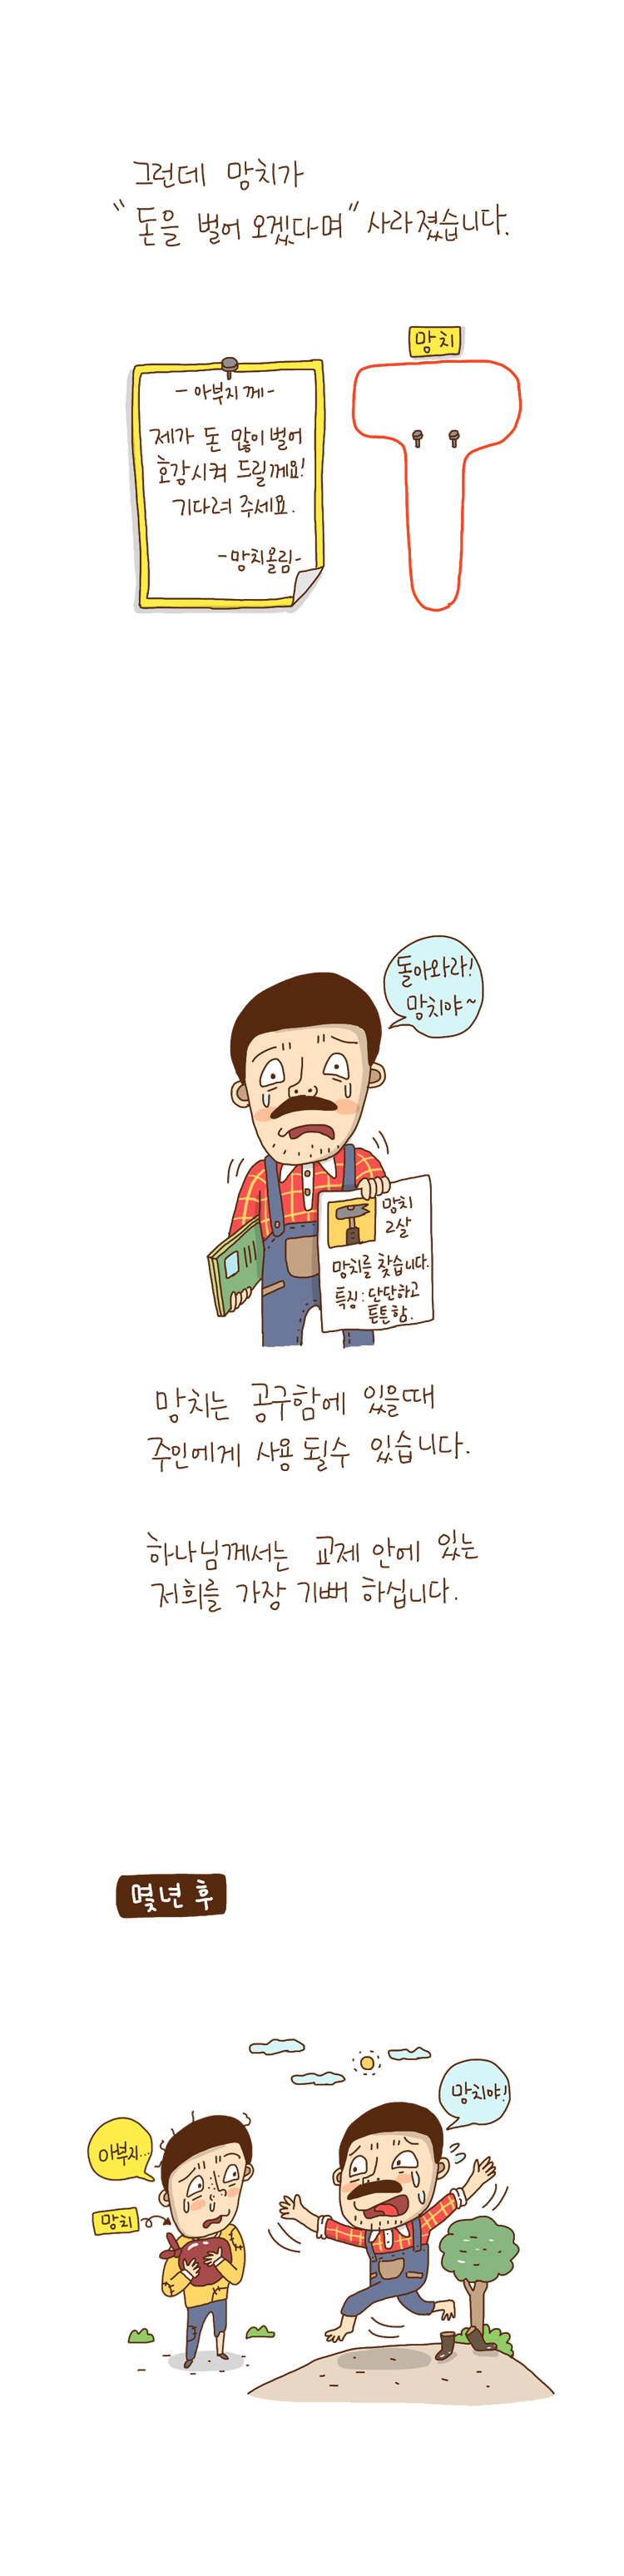 그런데 망치가
"돈을 벌어 오겠다며" 사라졌습니다.
망치
- 아부지께-
제가 돈 많이 벌어
호강시켜 드릴께요!
기다려 주세요.
-망치올림-
돌아와라!
망치야~
망치
2살
망치를 찾습니다.
특징: 단단하고
튼튼함.
망치는 공구함에 있을때
주인에게 사용 될수 있습니다.
하나님께서는 교제 안에 있는
저희를 가장 기뻐 하십니다.
몇년 후
망치야!
아부지...
망치